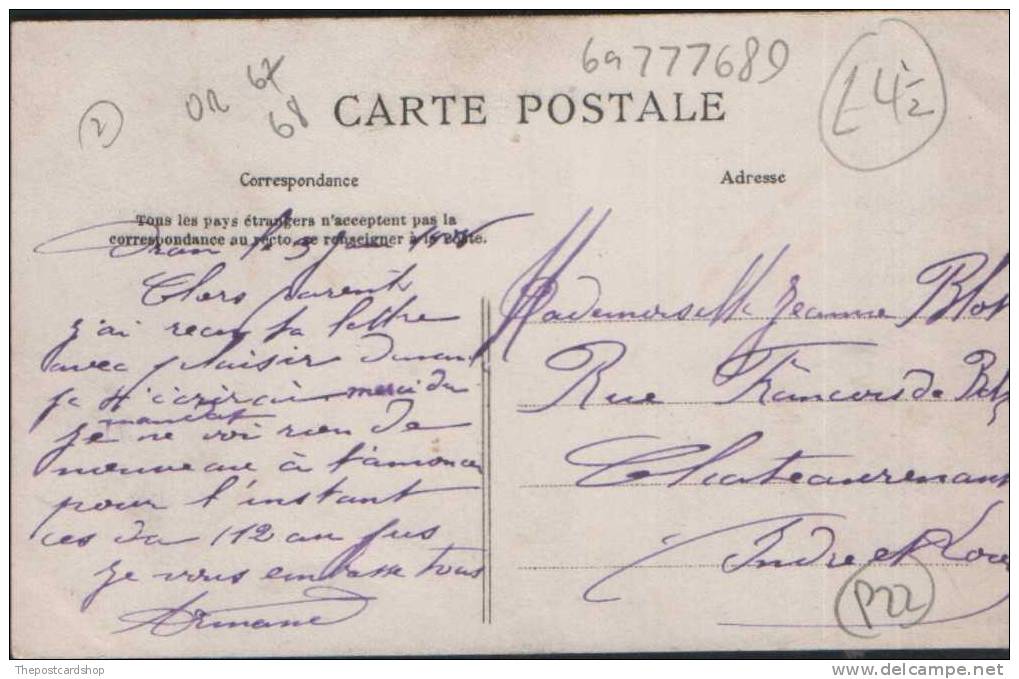 6a777689
£4½
2
OR
67
68
CARTE POSTALE
Correspondance
Adresse
Tous les pays étrangers n'acceptent pas la
correspondance au recto, se renseigner à la Poste.
Oran le 3
Chers parents
J'ai recu ta lettre
avec plaisir
je t'écrirai merci du
mandat
Je ne voi rien de
nouveau à t'anoncer
pour l'instant
ces du 112 au jus
Je vous embrasse tous
Armand
Mademoiselle Jeanne Blot
Rue Francois de
Chateaurenau
Indre et Loire
P22
Thepostcardshop
www.delcampe.net